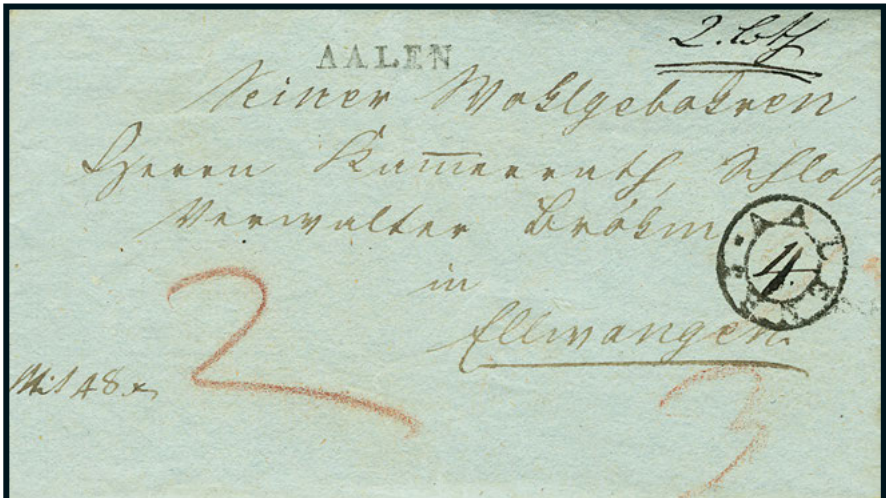 2. Loth
AALEN
Seiner Wohlgebohren
Herrn Kam̅errath, Schloß
Verwalter Bröhm
in
Ellwangen.
AALEN
4.
2
Mit 48 x
3